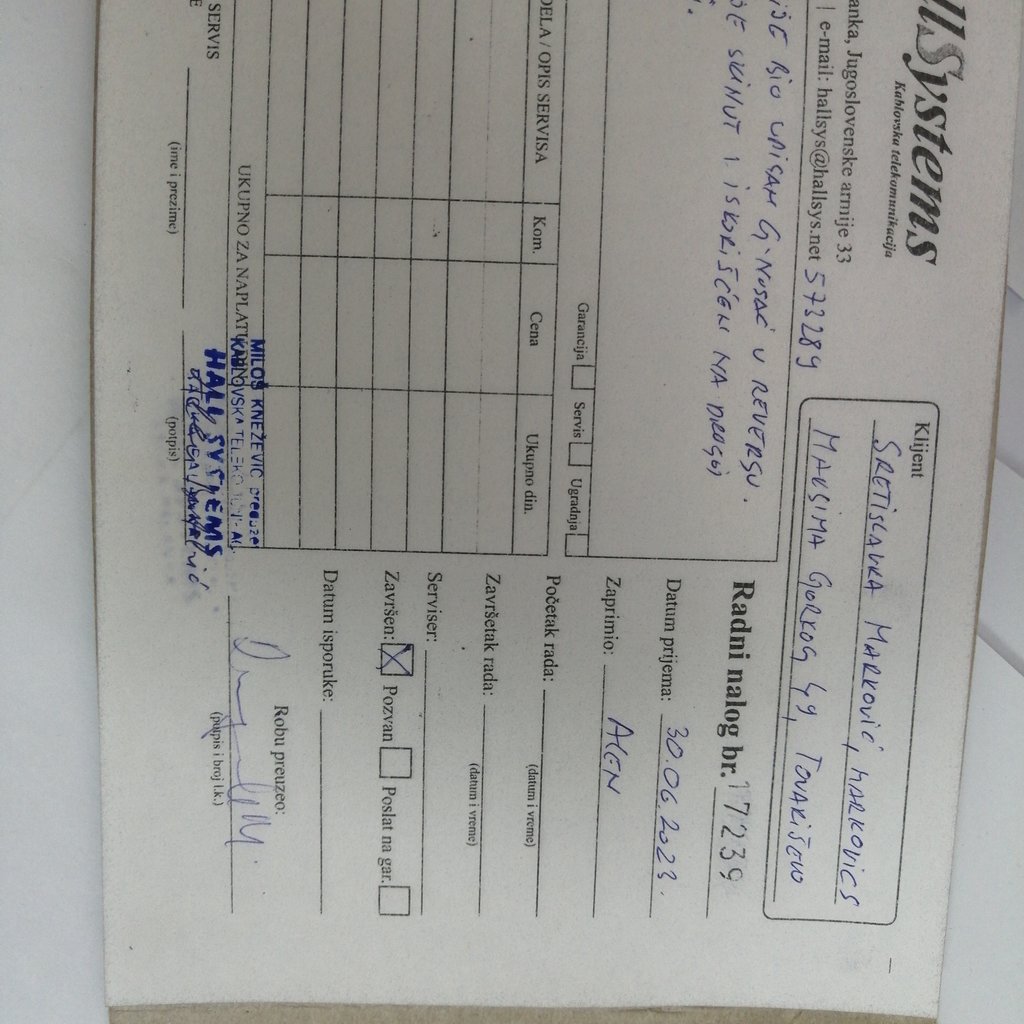 llSystems
Kablovska telekomunikacija
anka, Jugoslovenske armije 33
| e-mail: hallsys@hallsys.net 573289
Klijent
SRETISLAVKA MARKOVIĆ, MARKOVICS
MAKSIMA GORKOG 49, TOVARIŠEVO
IJE BIO UPISAN G. NOSAČ U REVERSU.
JE SKINUT I ISKORIŠĆEN NA DRUGOJ
Garancija Servis Ugradnja
DELA / OPIS SERVISA Kom. Cena Ukupno din.
UKUPNO ZA NAPLATU
Radni nalog br. 17239
Datum prijema: 30.06.2023.
Zaprimio: ALEN
Početak rada:
(datum i vreme)
Završetak rada:
(datum i vreme)
Serviser:
Završen: Pozvan Poslat na gar.
Datum isporuke:
Robu preuzeo:
(potpis i broj l.k.)
SERVIS
(ime i prezime)
(potpis)
MILOŠ KNEŽEVIĆ preduzet
KABLOVSKA TELEKO
HALL SYSTEMS